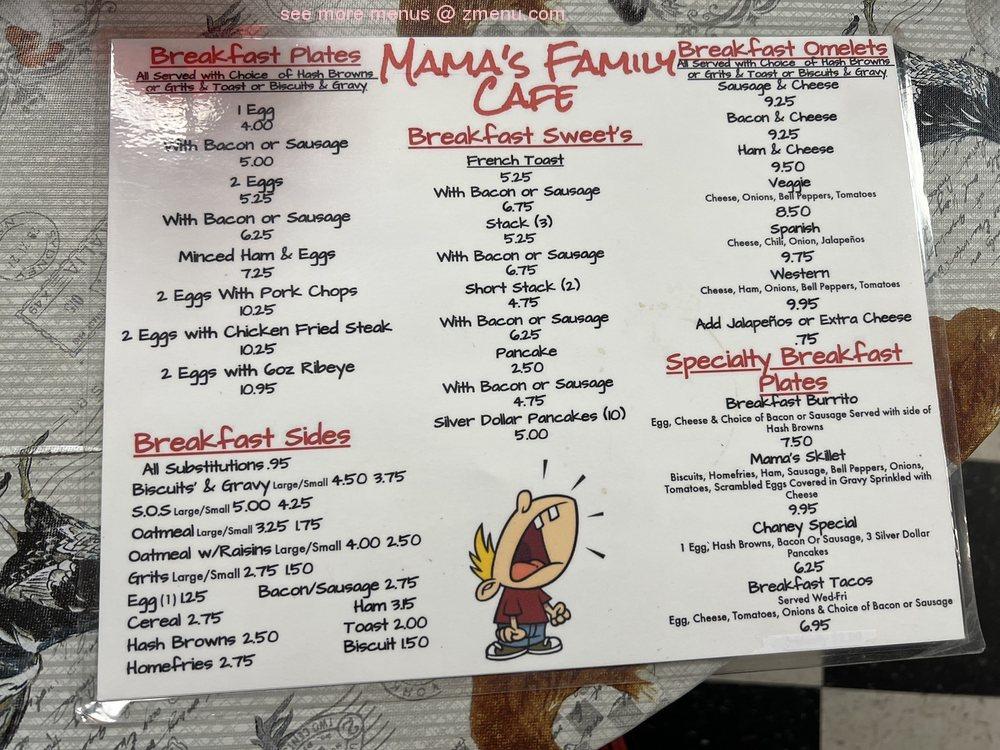 see more menus @ zmenu.com
Mama's Family
Cafe
Breakfast Plates
All Served with Choice of Hash Browns
or Grits & Toast or Biscuits & Gravy
1 Egg
4.00
With Bacon or Sausage
5.00
2 Eggs
5.25
With Bacon or Sausage
6.25
Minced Ham & Eggs
7.25
2 Eggs With Pork Chops
10.25
2 Eggs with Chicken Fried Steak
10.25
2 Eggs with 6oz Ribeye
10.95
Breakfast Sides
All Substitutions .95
Biscuits' & Gravy Large/Small 4.50 3.75
S.O.S Large/Small 5.00 4.25
Oatmeal Large/Small 3.25 1.75
Oatmeal w/Raisins Large/Small 4.00 2.50
Grits Large/Small 2.75 1.50
Egg (1) 1.25
Cereal 2.75
Hash Browns 2.50
Homefries 2.75
Bacon/Sausage 2.75
Ham 3.15
Toast 2.00
Biscuit 1.50
Breakfast Sweet's
French Toast
5.25
With Bacon or Sausage
6.75
Stack (3)
5.25
With Bacon or Sausage
6.75
Short Stack (2)
4.75
With Bacon or Sausage
6.25
Pancake
2.50
With Bacon or Sausage
4.75
Silver Dollar Pancakes (10)
5.00
Breakfast Omelets
All Served with Choice of Hash Browns
or Grits & Toast or Biscuits & Gravy
Sausage & Cheese
9.25
Bacon & Cheese
9.25
Ham & Cheese
9.50
Veggie
Cheese, Onions, Bell Peppers, Tomatoes
8.50
Spanish
Cheese, Chili, Onion, Jalapeños
9.75
Western
Cheese, Ham, Onions, Bell Peppers, Tomatoes
9.95
Add Jalapeños or Extra Cheese
.75
Specialty Breakfast
Plates
Breakfast Burrito
Egg, Cheese & Choice of Bacon or Sausage Served with side of
Hash Browns
7.50
Mama's Skillet
Biscuits, Homefries, Ham, Sausage, Bell Peppers, Onions,
Tomatoes, Scrambled Eggs Covered in Gravy Sprinkled with
Cheese
9.95
Chaney Special
1 Egg, Hash Browns, Bacon Or Sausage, 3 Silver Dollar
Pancakes
6.25
Breakfast Tacos
Served Wed-Fri
Egg, Cheese, Tomatoes, Onions & Choice of Bacon or Sausage
6.95